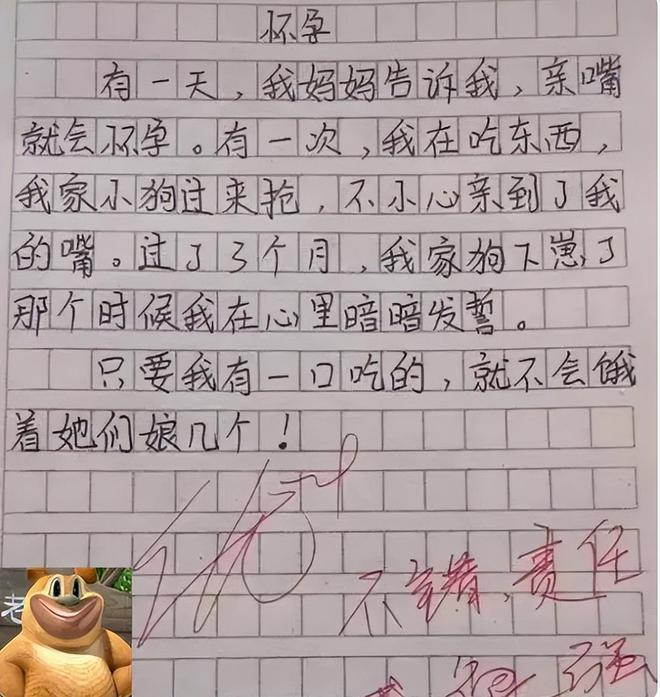 怀孕
有一天，我妈妈告诉我，亲嘴
就会怀孕。有一次，我在吃东西，
我家小狗过来抢，不小心亲到了我
的嘴。过了3个月，我家狗下崽了
那个时候我在心里暗暗发誓。
只要我有一口吃的，就不会饿
着她们娘几个！
不错，责任
很强
老